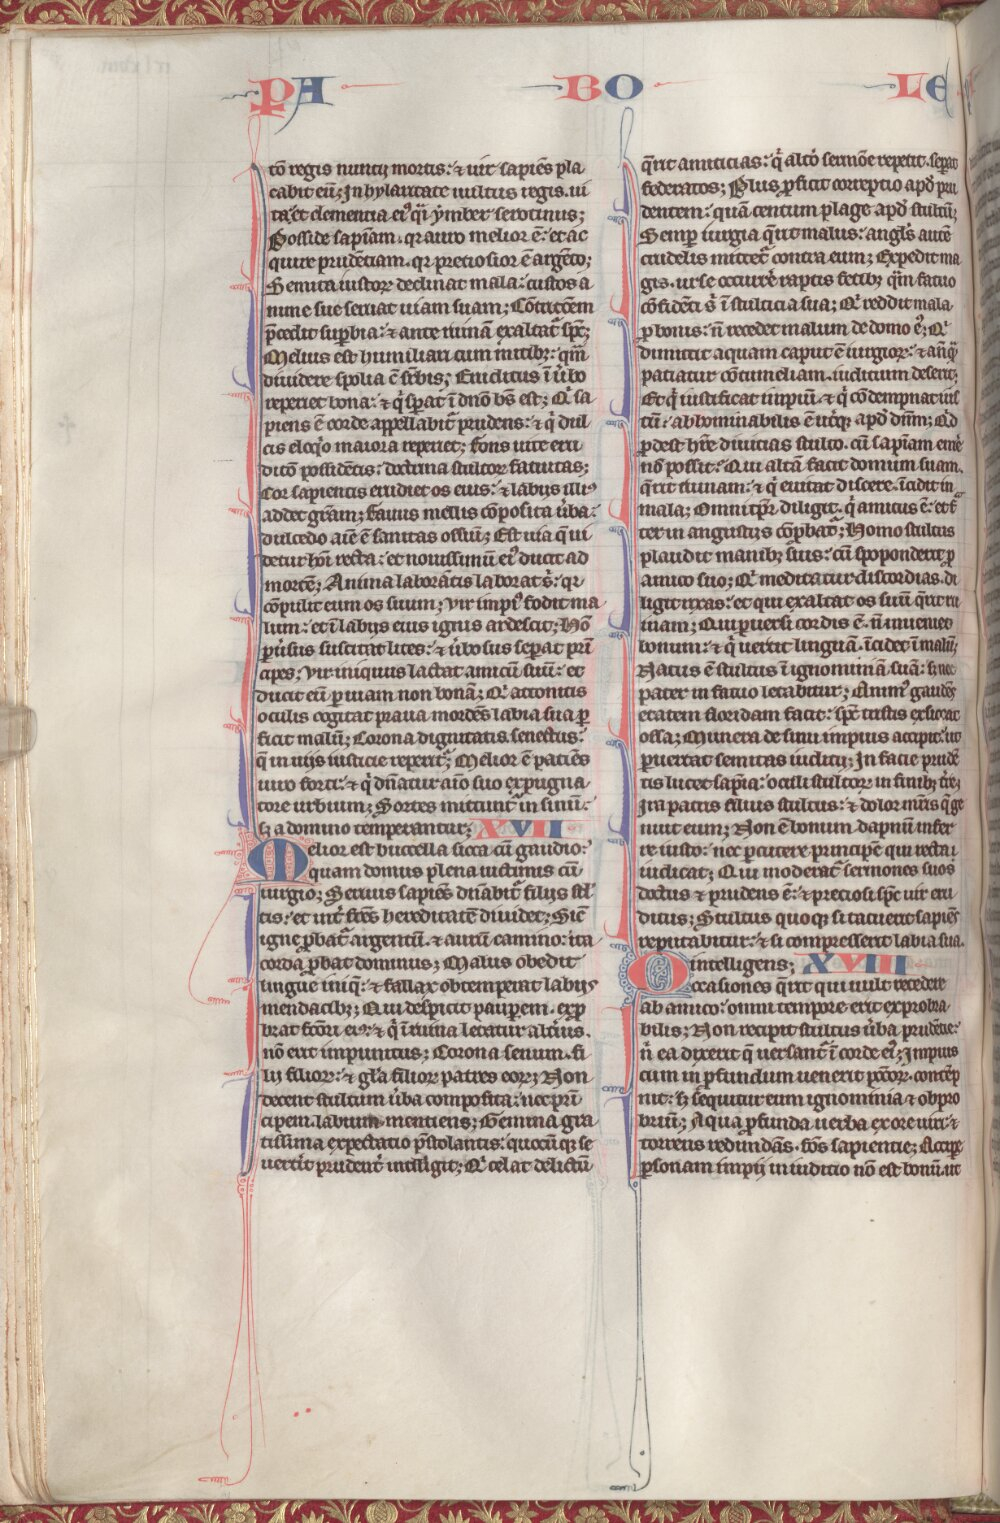 PA BO LE
cõ regis nuncij mortis: ⁊ uir sapiẽs pla
cabit eũ; In hylaritate uultus regis. ui
ta: et clementia ei᷒ q̃i ymber serotinus;
Posside sapĩam. qr auro melior ẽ: et ac
quire prudẽtiam. qr preciosior ẽ argẽto;
Semita iustoꝝ declinat mala: custos a
nime sue seruat uiam suam; Cõtricõem
p̃cedit suꝑbia: ⁊ ante ruinã exaltat᷑ spc̃;
Melius est humiliari cum mitibꝫ: qm̃
diuidere spolia c̃ sup̃bis; Eruditus ĩ ũbo
reperiet bona: ⁊ q̃ sperat ĩ dnõ bs̃ est; Qr̃ sa
piens ẽ corde appellabit᷑ prudens: ⁊ q̃ dul
cis eloq̃o maiora reperiet; fons uite eru
ditõ possidẽtis: doctrina stultoꝝ fatuitas;
Cor sapientis erudiet os eius: ⁊ labijs illi᷒
addet gr̃am; fauus mellis cõposita ũba:
dulcedo aiẽ ẽ sanitas ossiũ; Est uia q̃ ui
detur hoĩ recta: et nouissimũ ei᷒ ducit ad
mortẽ; Anima laborãtis laborat s̃: qr
cõpulit eum os suum; Vir impi᷒ fodit ma
lum: et ĩ labijs eius ignis ardescit; Hõ
ꝑũsus suscitat lites: ⁊ ũbosus seꝑat prĩ
cipes; Vir iniquus lactat amicũ suũ: et
ducit eũ ꝑ uiam non bonã; Qr̃ attonitis
oculis cogitat praua mordẽs labia sua ꝑ
ficit malũ; Corona dignitatis senectus:
q̃ in uijs iusticie reperit᷑; Melior ẽ patiẽs
uiro forti: ⁊ q̃ dñatur aĩo suo expugna
tore urbium; Sortes mittunt᷑ in sinũ:
sꝫ a domino temperantur; XVII
Melior est buccella sicca cũ gaudio:
quam domus plena uictimis cũ
iurgio; Seruus sapiẽs dñabit᷑ filijs stl᷑
tis: et int̃ fr̃es hereditatẽ diuidet; Sic̃
igne ꝓbat᷑ argentũ. ⁊ aurũ camino: ita
corda ꝓbat dominus; Malus obedit
lingue iniq̃: ⁊ fallax obtemperat labijs
mendacibꝫ; Qui despicit pauꝑem. exꝓ
brat fcõri ei᷒: ⁊ q̃ ĩ ruina letatur alt̃ius.
nõ erit impunitus; Corona senum. fi
lij filioꝝ: ⁊ gl̃a filioꝝ patres eoꝝ; Non
decent stultum ũba composita: nec prĩ
cipem. labium mentiens; Gemma gra
tissima expectatio p̃stolantis: quocũqꝫ se
uertit prudent᷑ intelligit; Qr̃ celat delictũ
q̃rit amicicias: q̃ altõ sermõe repetit. seꝑat
federatos; Plus ꝓficit correptio apd̃ pru
dentem: quã centum plage apd̃ stultũ;
Semꝑ iurgia q̃rit malus: angl̃s autẽ
crudelis mittet᷑ contra eum; Expedit ma
gis. urse occurrẽ raptis fetibꝫ q̃m fatuo
cõfidẽti s̃ ĩ stulticia sua; Qr̃ reddit mala.
ꝓ bonis: ñ recedet malum de domo ei᷒; Qr̃
dimittit aquam caput ẽ iurgioꝝ: ⁊ añq̃
patiatur cõtumeliam. iudicium deserit;
Et q̃ iustificat impiũ. ⁊ q̃ cõdempnat ius
tũ: abhominabilis ẽ ut̃qꝫ apd̃ dñm; Qd̃
ꝓdest hr̃e diuicias stulto. cũ sapĩam emẽ
nõ possit: Qui altã facit domum suam.
q̃rit ruinam: ⁊ q̃ euitat discere. ĩcidit in
mala; Omni tp̃r diligit. q̃ amicus ẽ: et fr̃
ter in angustijs cõprbat᷑; Homo stultus
plaudit manibꝫ suis: cũ spoponderit ꝓ
amico suo; Qr̃ meditatur discordias. di
ligit rixas: et qui exaltat os suũ q̃rit ru
inam; Qui ꝑuersi cordis ẽ. ñ inueniet
bonum: ⁊ q̃ uertit linguã. ĩcidet ĩ malũ;
Natus ẽ stultus ĩ ignominiã suã: s; nec
pater in fatuo letabitur; Anim᷒ gaudẽs
etatem floridam facit: spc̃ tristis exsiccat
ossa; Munera de sinu impius accipit: ut
ꝑuertat semitas iudicij; In facie prudẽ
tis lucet sapĩa: oculi stultoꝝ in finibꝫ t̃re;
Ira patris filius stultus: ⁊ dolor mr̃is q̃ ge
nuit eum; Non ẽ bonum dapnũ infer
re iusto: nec ꝑcutere principẽ qui recta
iudicat; Qui moderat᷑ sermones suos
doctus ⁊ prudens ẽ: ⁊ preciosi spc̃ uir eru
ditus; Stultus quoqꝫ si tacuerit sapiẽs
reputabitur: ⁊ si compresserit labia sua.
intelligens; XVIII
Occasiones q̃rit qui uult recedere
ab amico: omni tempore erit exproba
bilis; Non recipit stultus ũba prudẽtie:
ñ ea dixerit q̃ uersant᷑ ĩ corde ei᷒; Impius
cum in ꝓfundum uenerit pcc̃oꝝ. contẽp
nit: sꝫ sequitur eum ignominia ⁊ obpro
briũ; Aqua ꝓfunda uerba ex ore uiri: ⁊
torrens redundãs. fõs sapientie; Accipe
ꝑsonam impij in iudicio nõ est bonũ. ut